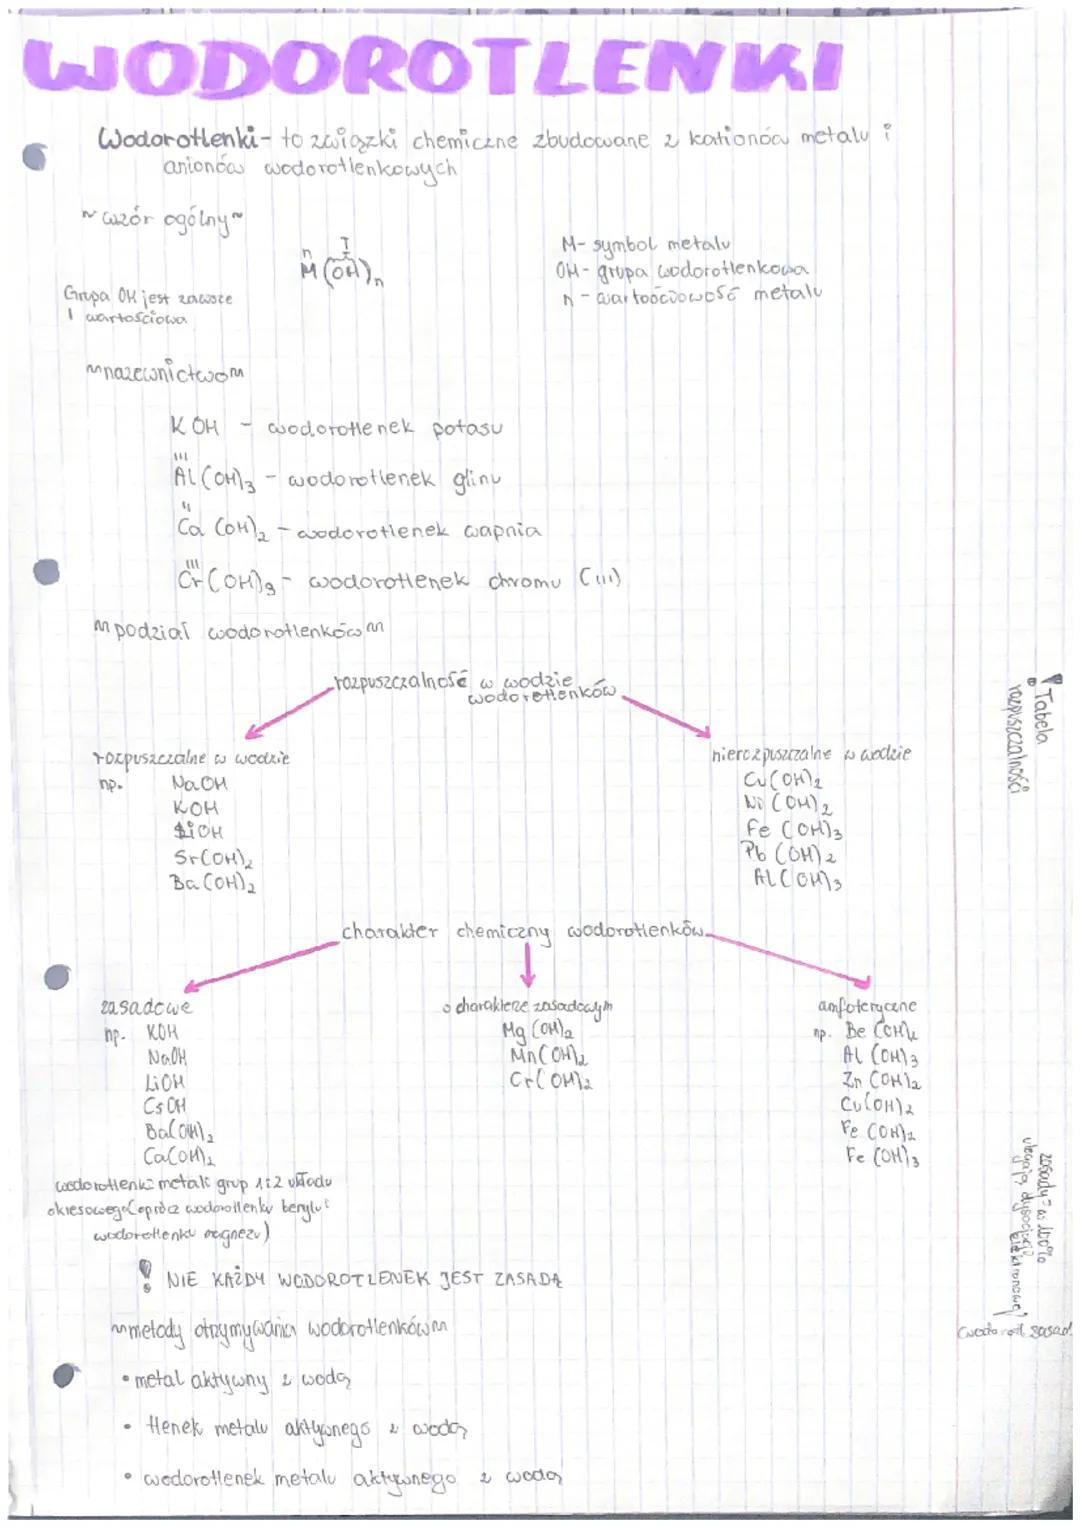 WODOROTLENKI
Wodorotlenki - to związki chemiczne zbudowane z kationów metalu i
anionów wodorotlenkowych
~ wzór ogólny ~
n I
M (OH)n
M - symbol metalu
OH - grupa wodorotlenkowa
n - wartościowość metalu
Grupa OH jest zawsze
1 wartościowa
~ nazewnictwo ~
KOH - wodorotlenek potasu
III
Al(OH)3 - wodorotlenek glinu
II
Ca(OH)2 - wodorotlenek wapnia
III
Cr(OH)3 - wodorotlenek chromu (III)
~ podział wodorotlenków ~
rozpuszczalność w wodzie
wodorotlenków
! Tabela
rozpuszczalności
rozpuszczalne w wodzie
np. NaOH
KOH
LiOH
Sr(OH)2
Ba(OH)2
nierozpuszczalne w wodzie
Cu(OH)2
Ni(OH)2
Fe(OH)3
Pb(OH)2
Al(OH)3
charakter chemiczny wodorotlenków
zasadowe
np. KOH
NaOH
LiOH
CsOH
Ba(OH)2
Ca(OH)2
wodorotlenki metali grup 1 i 2 układu
okresowego (oprócz wodorotlenku berylu i
wodorotlenku magnezu)
o charakterze zasadowym
Mg(OH)2
Mn(OH)2
Cr(OH)2
amfoteryczne
np. Be(OH)2
Al(OH)3
Zn(OH)2
Cu(OH)2
Fe(OH)2
Fe(OH)3
zasady = w 100%
ulegają dysocjacji
elektronowej
(wodorotl. zasad.
! NIE KAŻDY WODOROTLENEK JEST ZASADĄ
~ metody otrzymywania wodorotlenków ~
• metal aktywny z wodą
• tlenek metalu aktywnego z wodą
• wodorotlenek metalu aktywnego z wodą